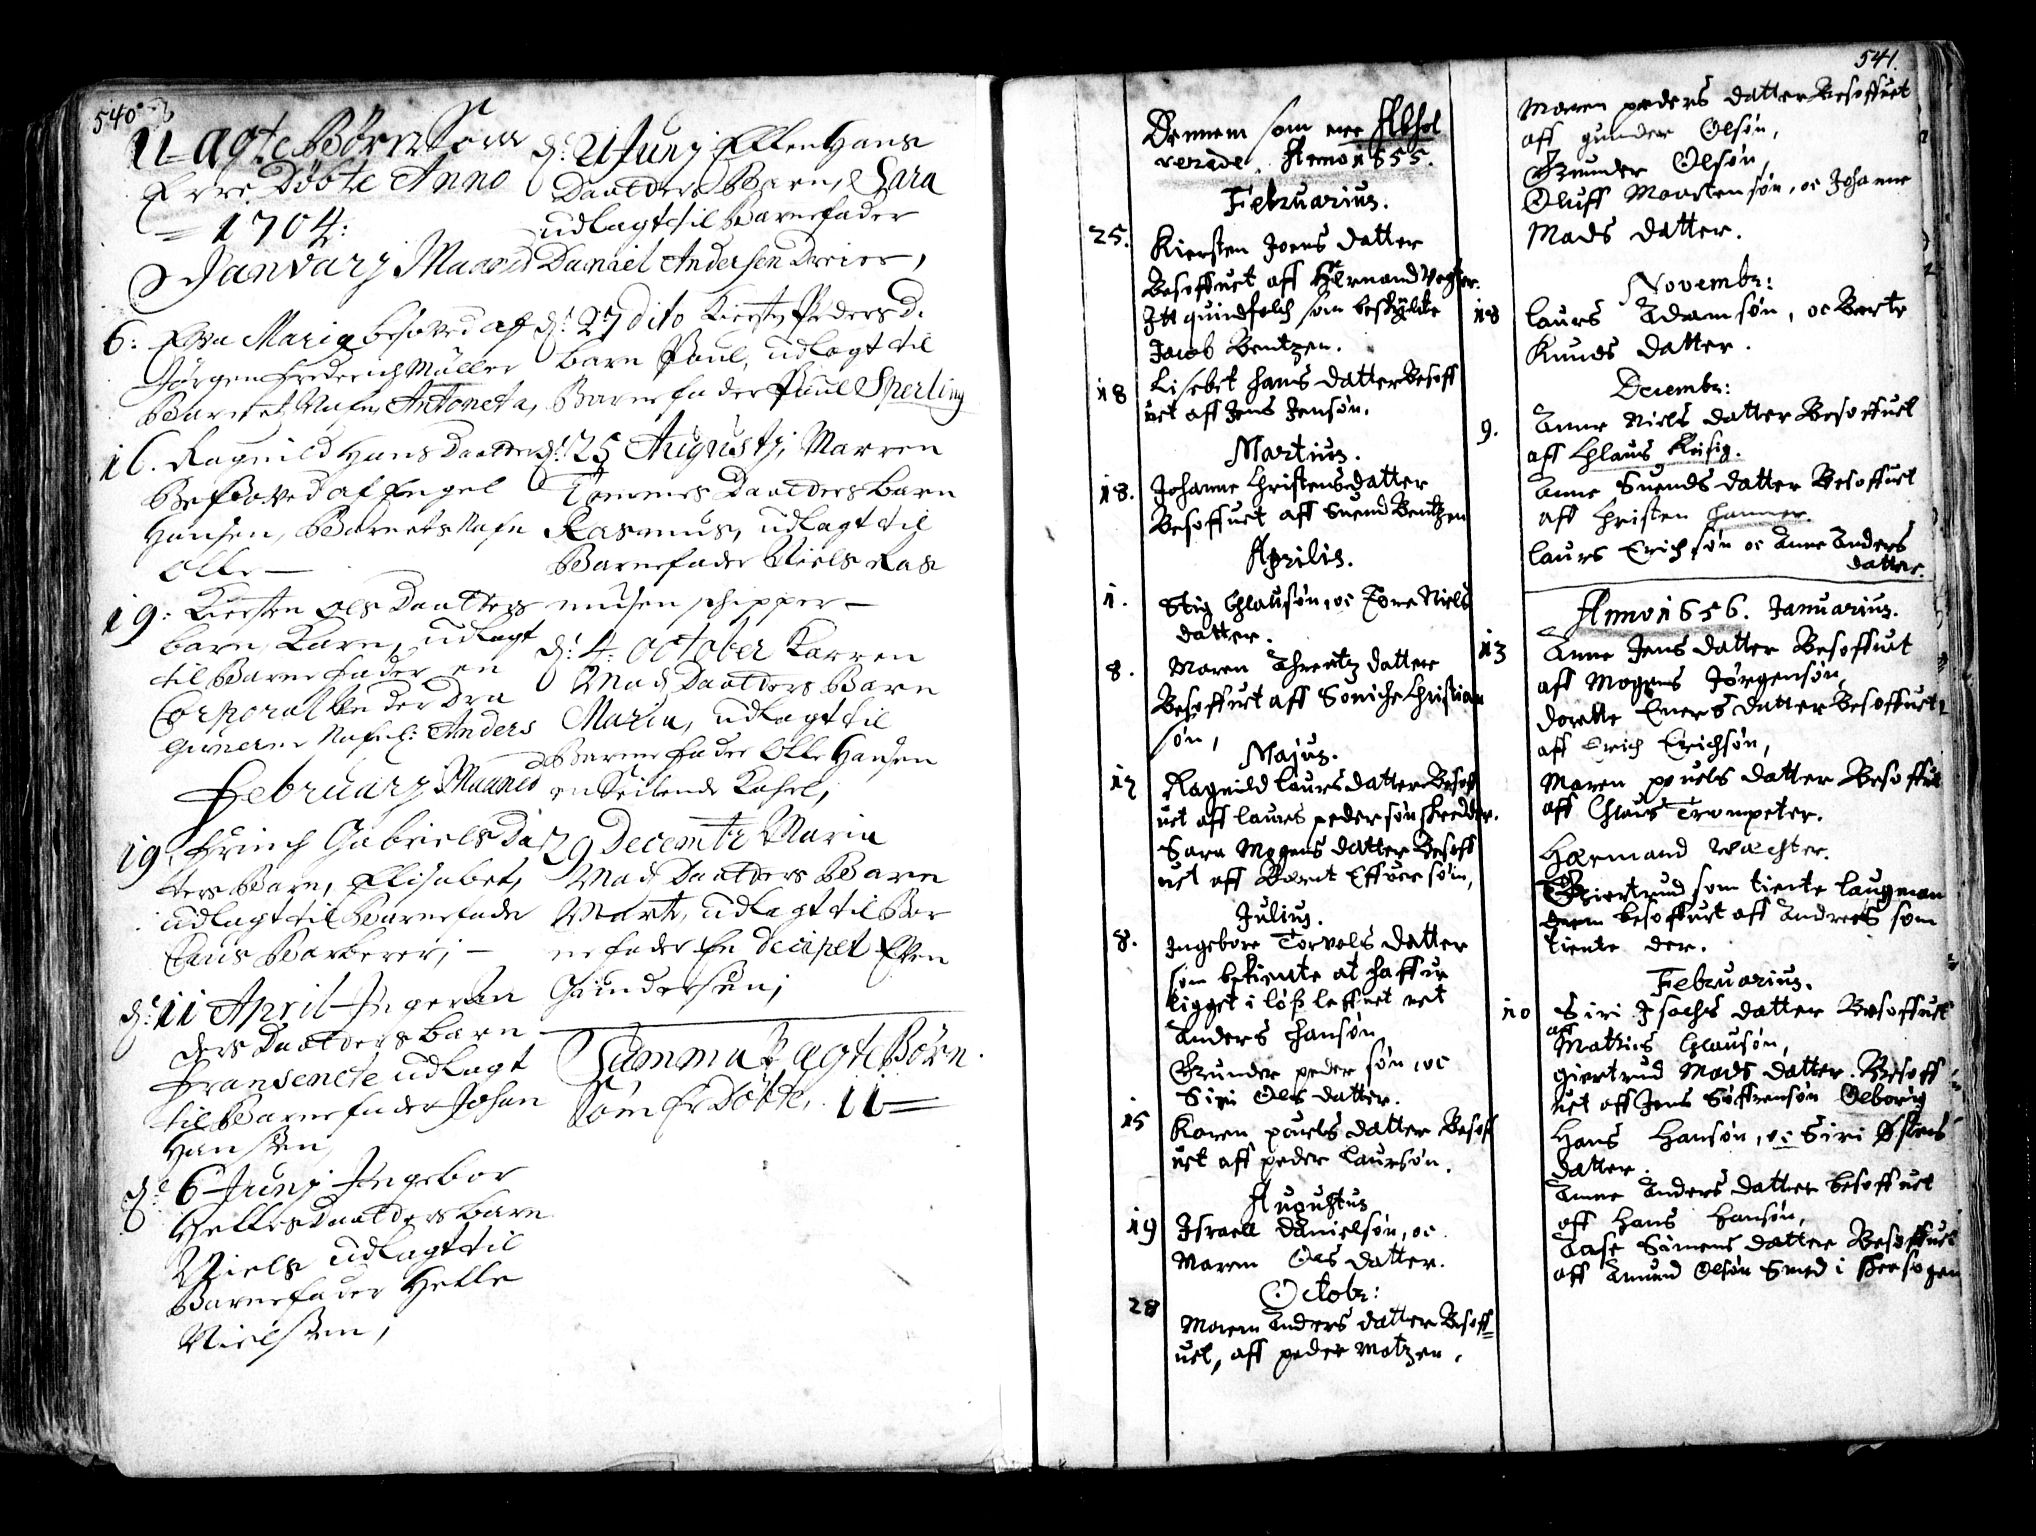 540
U-ægte Børn Som
Erre Døbte Anno
1704:
Januarj Maaned
6: Eva Maria besoved af
Jørgen Frederich Müller
Barnets Nafn Antoneta,
16. Ragnild Hans Daatter
Besoved af Engel
Hansen, Barnets Nafn
Olle
19: Kiersten Ols Daatters
barn, Karn, udlagt
til Barnefader en
Corporal under Dra
gunerne Nafnl: Anders
Februarj Maaned
19. Gabriels Da
ters Barn, Elisabet,
udlagt til Barnefader
Claus Barberer;
d: 11 April Inger An
ders Daatters barn
udlagt
til Barnefader Johan
Hansen,
d: 6 Junj Ingebor
Helles Daatters barn
Niels udlagt til
Barnefader Helle
Nielsen,
d: 21 Junj Ellen Hans
Daatters Barn, Sara
udlagt til Barnefader
Daniel Andersen Dreier,
d: 27 dito Kiersty Peders D.
barn Paul, udlagt til
Barnefader Paul Sperling
d: 25 Augustj, Marren
Tommes Daatters barn
Rasmus, udlagt til
Barnefader Niels Ras
musen schipper
d: 4: October Karren
Mads Daatters Barn
Maria, udlagt til
Barnefader Olle Hansen
en Seilende Kahrl,
29 Decembr Maria
Mads Daatters Barn
udlagt til Bar
nefader En Even
Gundersen,
Summa Uægte Børn
Som Er Døbte, 11
541.
Dennem som ere Absol
verede. Anno 1655.
Februarius.
25. Kiersten Joens datter
Besoffuet aff Hermand
Itt quindfolch som beskylte
Jacob Bentzen.
18 Lisebet Hans datter Besoff
uet aff Jens Jensøn.
Martius.
18. Johanne Christens datter
Besoffuet aff Suend Bentzen
Aprilis.
1. Stig Clausøn, oc Tore Niels
datter.
8. Maren datter
Besoffuet aff Søniche Christian
søn,
Majus.
17 Ragnild Laurs datter Besoff
uet aff Laurs pedersøn skredder.
Sara Mogens datter Besoff
uet aff Bernt Effuersøn,
Julius.
8. Ingebore Torvols datter
som bekiente at haffue
ligget i løs leffnet met
Anders Hansøn
Gunder pedersøn, oc
Siri Ols datter.
15 Karen pouels datter Besoff
uet aff peder Laursøn.
Augustus
19 Israell Danielsøn, oc
Maren Ols datter.
Octobr:
28 Maren Anders datter Besoff=
uet, aff peder Matzen.
Maren peders datter Besoffuet
aff gunder Olsøn,
Gunder Olsøn,
Oluff Mortensøn, oc Johanne
Mads datter.
Novembr:
18 Laurs Adamsøn, oc Berte
Knuds datter.
Decembr:
9. Anne Niels datter Besoffuet
aff Claus
Anne Suends datter Besoffuet
aff Christen Hammer.
Laurs Erichsøn oc Anne Anders
datter.
Anno 1656. Januarius.
13 Anne Jens datter Besoffuet
aff Mogens Jørgensøn,
Dorette Euers datter Besoffuet
aff Erich Erichsøn,
Maren pouels datter Besoffuet
aff Claus Trompeter.
Hermand Wachter.
Giertrud som tiente Laugman
den besoffuet aff Andrees som
tiente der.
Februarius.
10 Siri Isachs datter Besoffuet
aff
Mathies Clausøn,
giertrud Mads datter Besoff
uet aff Jens Søffrensøn Olborig
Hans Hansøn, oc Siri
datter.
Anne Anders datter besoffuet
aff Hans Hansøn,
Aase Simens datter Besoffuet
aff Amund Olsøn Smed i